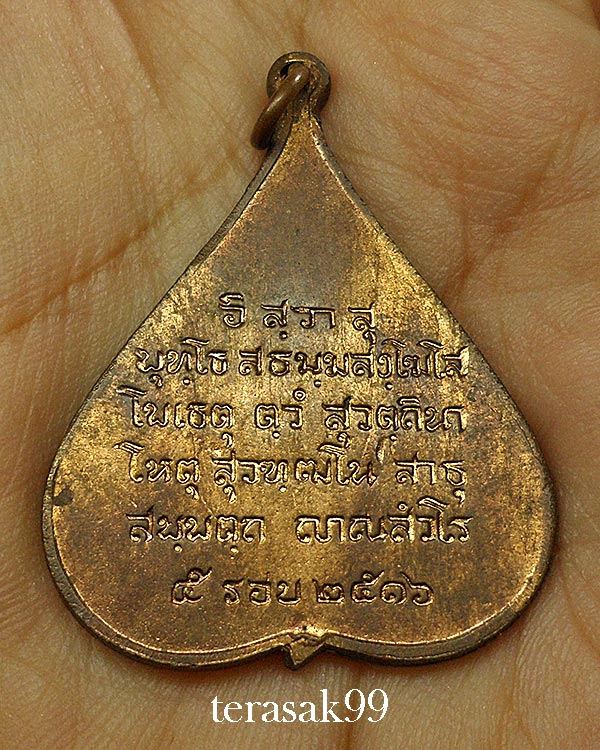 อิ สฺวา สุ
พุทฺโธ สธมฺมสงฺโฆโส
โพเธตุ ตฺวํ
โหตุ สุวฑฺฒโน สาธุ
สพฺพตฺถ ญาณสํวโร
๕ รอบ ๒๕๑๖
terasak99